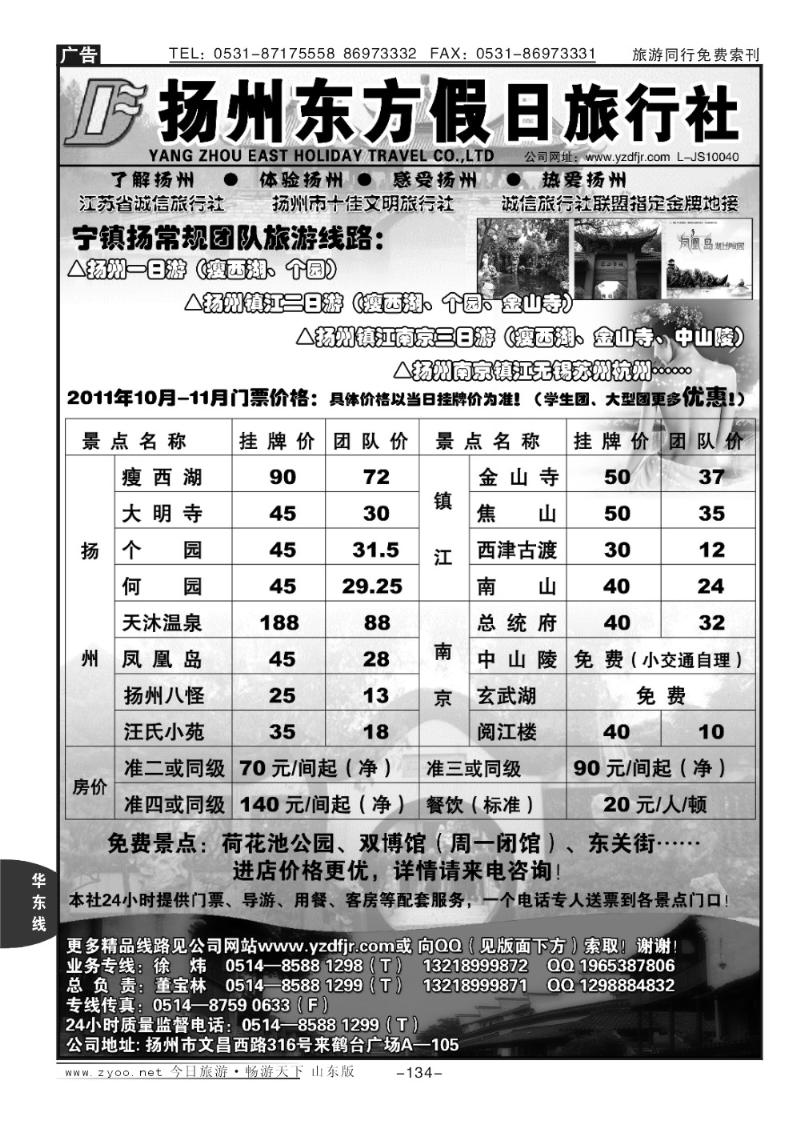 广告 TEL: 0531-87175558 86973332 FAX: 0531-86973331 旅游同行免费索刊
扬州东方假日旅行社
YANG ZHOU EAST HOLIDAY TRAVEL CO.,LTD 公司网址: www.yzdfjr.com L-JS10040
了解扬州 ● 体验扬州 ● 感受扬州 ● 热爱扬州
江苏省诚信旅行社 扬州市十佳文明旅行社 诚信旅行社联盟指定金牌地接
宁镇扬常规团队旅游线路:
凤凰岛
△扬州一日游(瘦西湖、个园)
△扬州镇江二日游(瘦西湖、个园、金山寺)
△扬州镇江南京三日游(瘦西湖、金山寺、中山陵)
△扬州南京镇江无锡苏州杭州······
2011年10月-11月门票价格: 具体价格以当日挂牌价为准!(学生团、大型团更多优惠!)
景点名称 挂牌价 团队价 景点名称 挂牌价 团队价
扬州 瘦西湖 90 72 镇江 金山寺 50 37
大明寺 45 30 焦山 50 35
个园 45 31.5 西津古渡 30 12
何园 45 29.25 南山 40 24
天沐温泉 188 88 南京 总统府 40 32
凤凰岛 45 28 中山陵 免费(小交通自理)
扬州八怪 25 13 玄武湖 免费
汪氏小苑 35 18 阅江楼 40 10
房价 准二或同级 70元/间起(净) 准三或同级 90元/间起(净)
准四或同级 140元/间起(净) 餐饮(标准) 20元/人/顿
免费景点: 荷花池公园、双博馆(周一闭馆)、东关街······
进店价格更优,详情请来电咨询!
华东线
本社24小时提供门票、导游、用餐、客房等配套服务,一个电话专人送票到各景点门口!
更多精品线路见公司网站www.yzdfjr.com或 向QQ(见版面下方)索取! 谢谢!
业务专线: 徐 炜 0514—8588 1298(T) 13218999872 QQ 1965387806
总 负 责: 董宝林 0514—8588 1299(T) 13218999871 QQ 1298884832
专线传真: 0514—8759 0633(F)
24小时质量监督电话: 0514—8588 1299(T)
公司地址: 扬州市文昌西路316号来鹤台广场A—105
www.zyoo.net 今日旅游·畅游天下 山东版 -134-